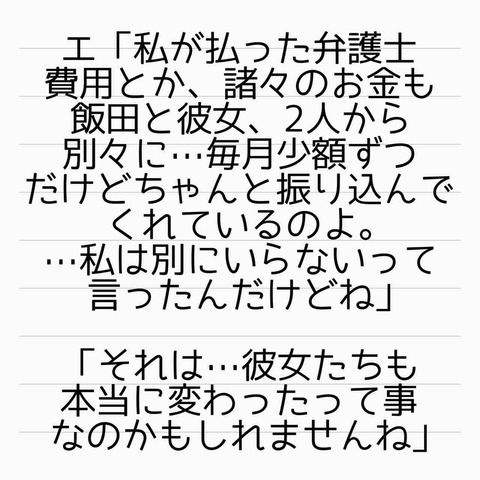 エ「私が払った弁護士
費用とか、諸々のお金も
飯田と彼女、2人から
別々に…毎月少額ずつ
だけどちゃんと振り込んで
くれているのよ。
…私は別にいらないって
言ったんだけどね」
「それは…彼女たちも
本当に変わったって事
なのかもしれませんね」